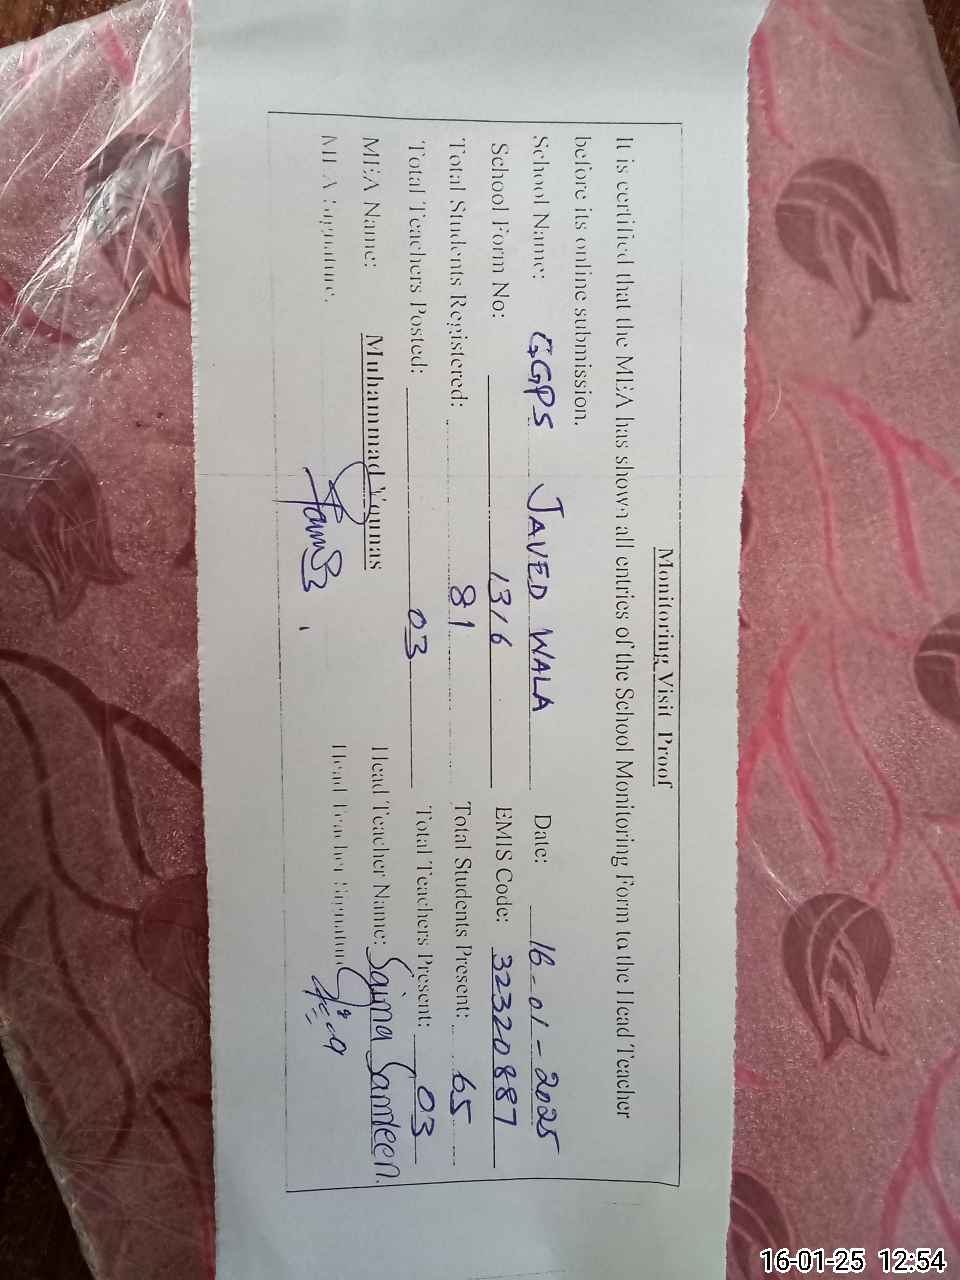 Monitoring Visit Proof
It is certified that the MEA has shown all entries of the School Monitoring Form to the Head Teacher
before its online submission.
School Name: GGPS JAVED WALA Date: 16-01-2025
School Form No: 1316 EMIS Code: 32320887
Total Students Registered: 81 Total Students Present: 65
Total Teachers Posted: 03 Total Teachers Present: 03
MEA Name: Muhammad Younas Head Teacher Name: Saima Samreen.
MEA Signature: Head Teacher Signature
16-01-25 12:54